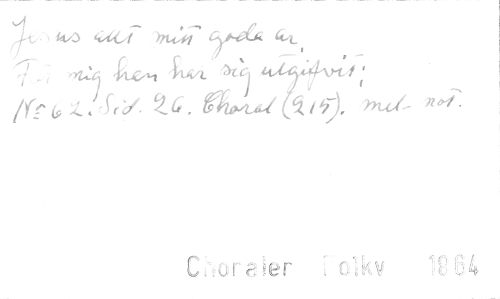 Jesus allt mitt goda är,
För mig han har sig utgifvit;
No 62. Sid. 26. Choral (215). mel. not.
Choraler Folkv 1864